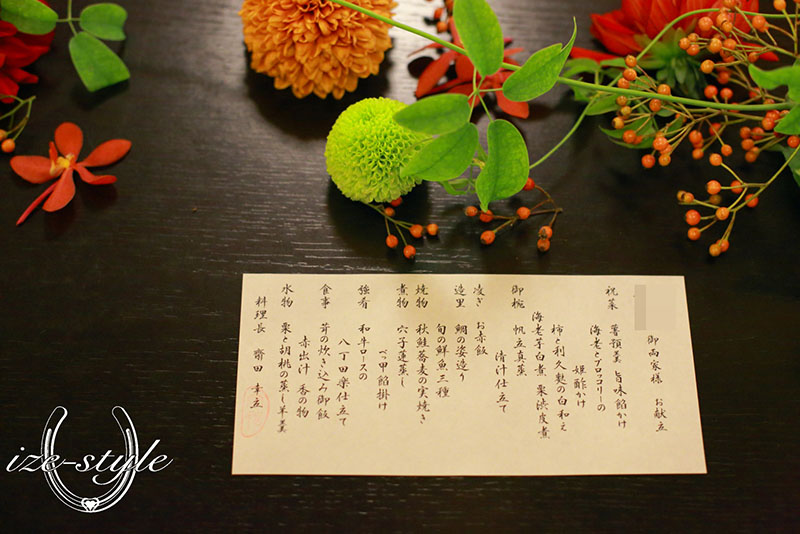 御両家様 お献立
祝菜 薯預羹 旨味餡かけ
海老とブロッコリーの
姫酢かけ
柿と利久麩の白和え
海老芋白煮 栗渋皮煮
御椀 帆立真薯
清汁仕立て
凌ぎ お赤飯
造里 鯛の姿造り
旬の鮮魚三種
焼物 秋鮭蕎麦の実焼き
煮物 穴子蓮蒸し
べっ甲餡掛け
強肴 和牛ロースの
八丁田楽仕立て
食事 茸の炊き込み御飯
赤出汁 香の物
水物 栗と胡桃の蒸し羊羹
料理長 齋田 幸立
ize-style